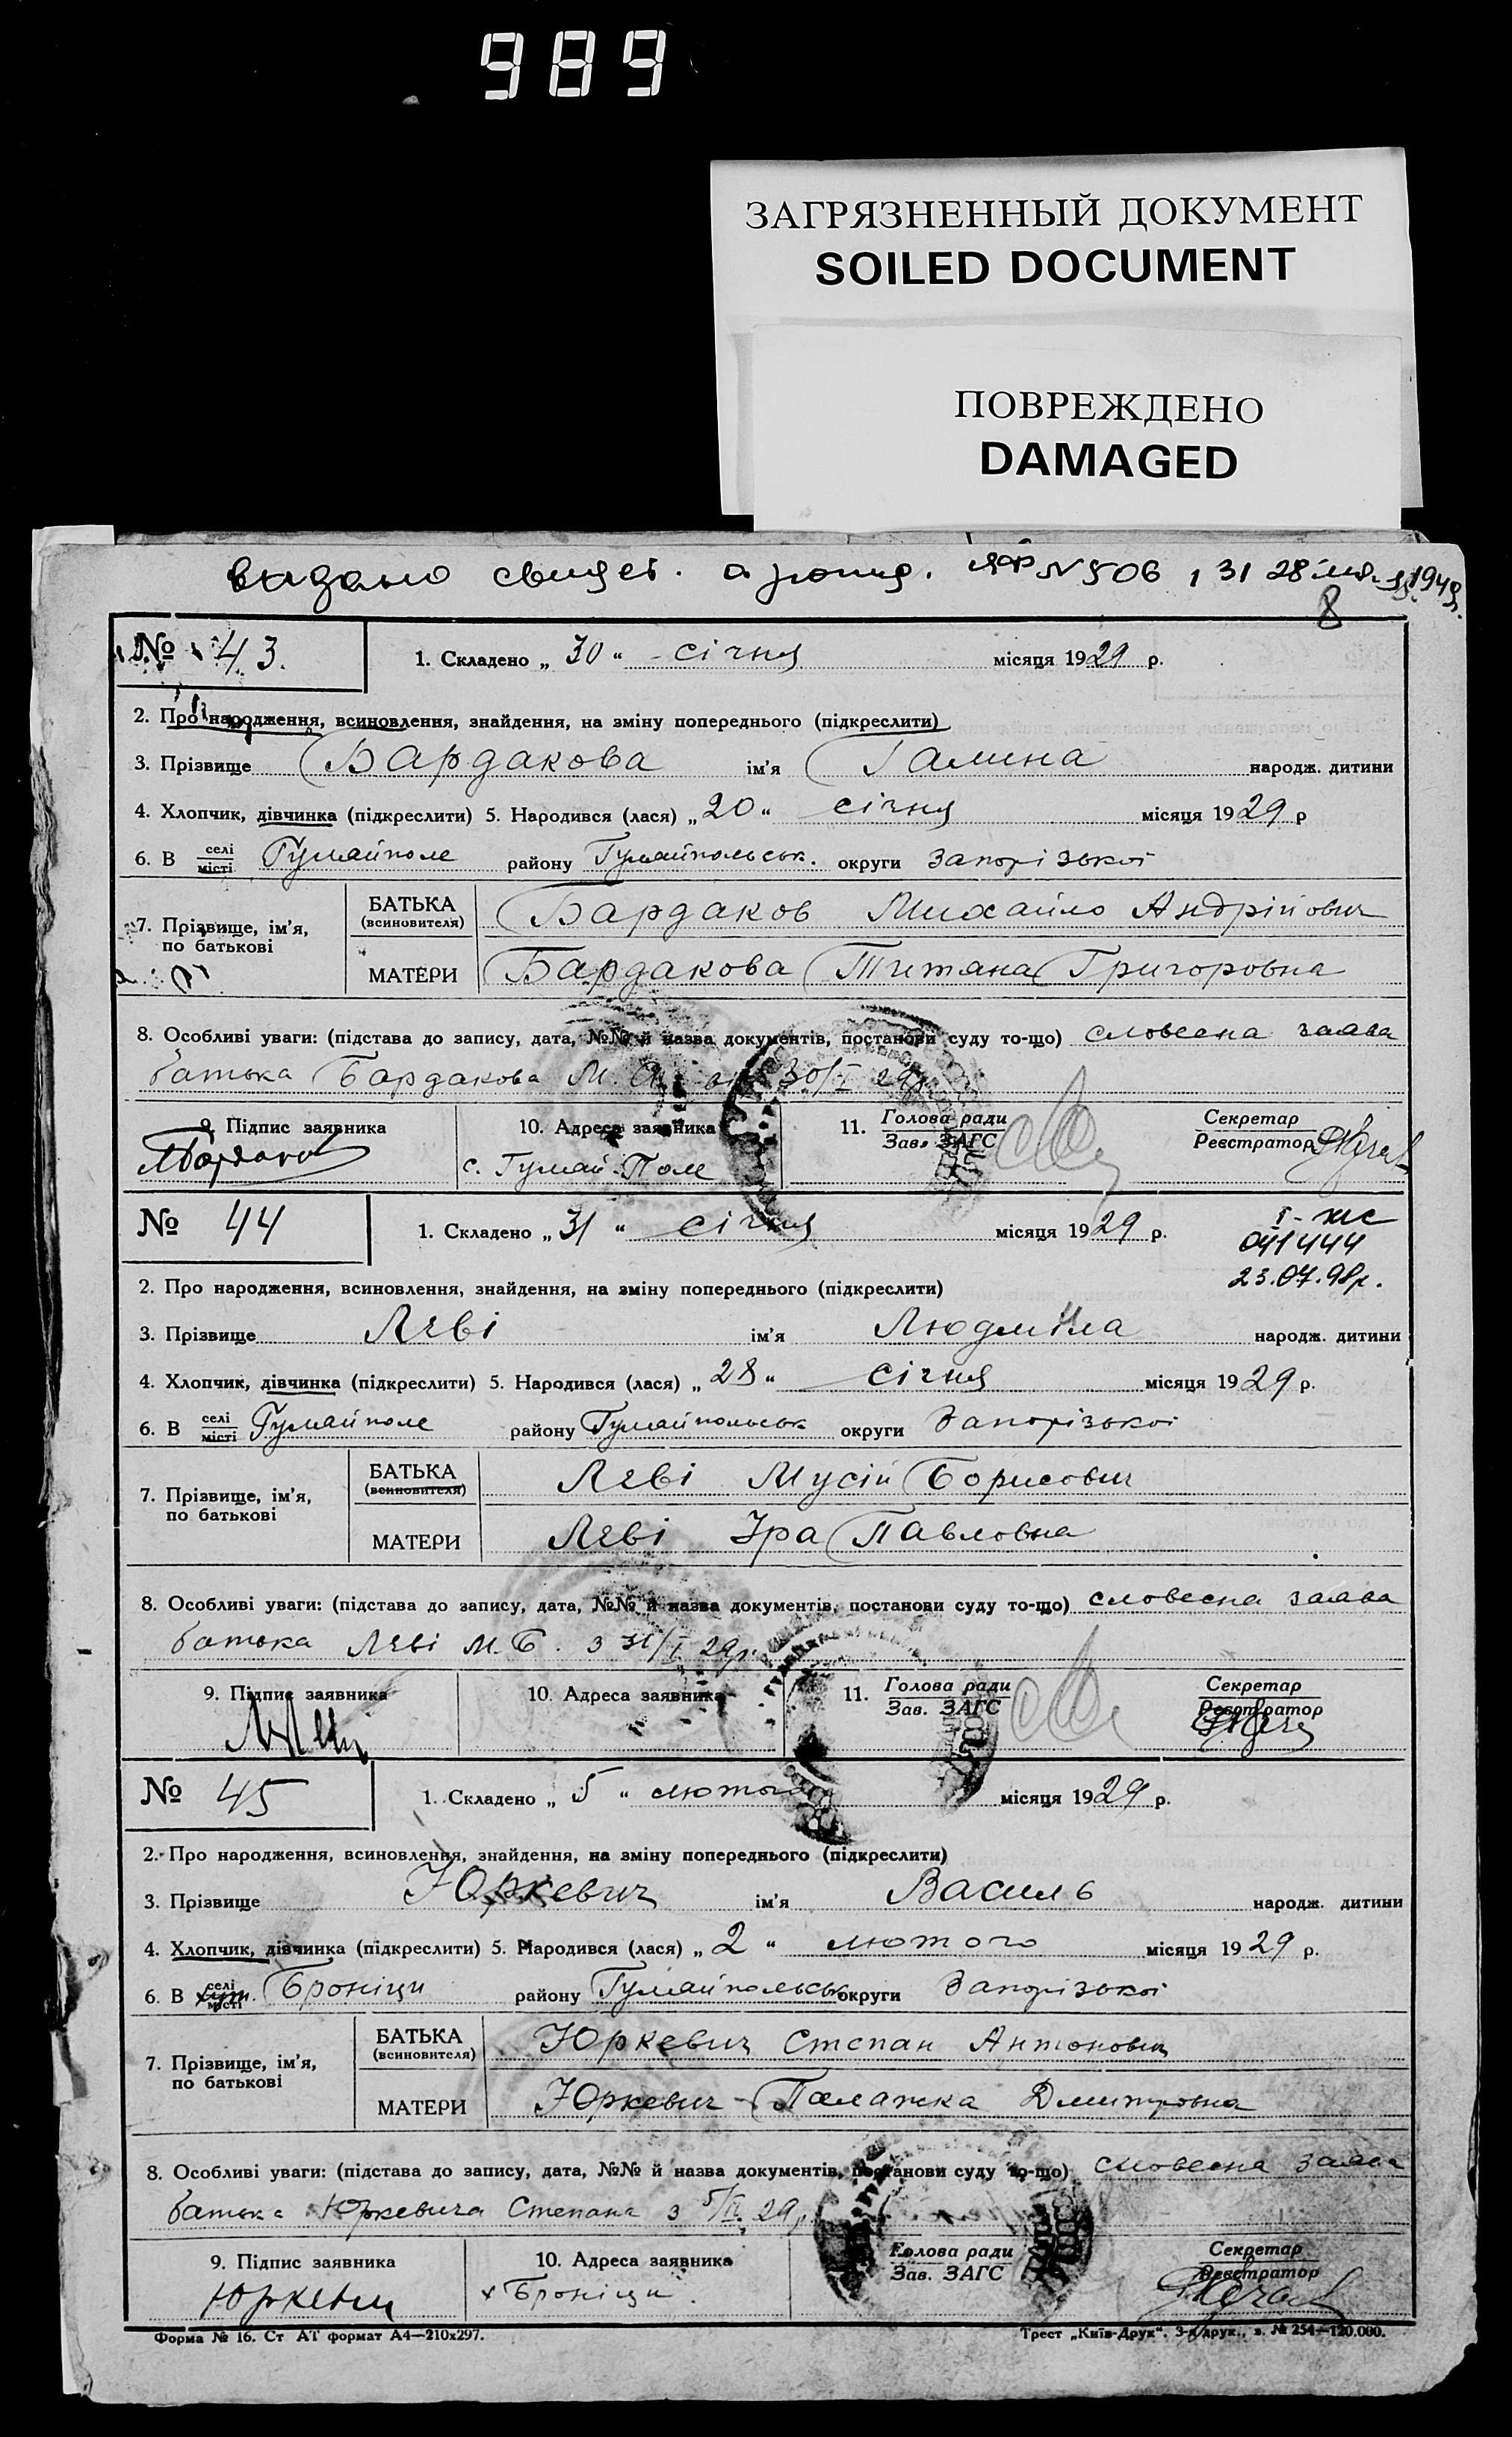 989
ЗАГРЯЗНЕННЫЙ ДОКУМЕНТ
SOILED DOCUMENT
ПОВРЕЖДЕНО
DAMAGED
видано свидет. о рожд. ЯФ № 506 131 28 1949
8
№ 43. 1. Складено „ 30 “ січня місяця 1929 р.
2. Про народження, всиновлення, знайдення, на зміну попереднього (підкреслити)
3. Прізвище Бардакова ім'я Галина народж. дитини
4. Хлопчик, дівчинка (підкреслити) 5. Народився (лася) „ 20 “ січня місяця 1929 р
6. В селі місті Гуляйполе району Гуляйпольськ. округи Запорізької
7. Прізвище, ім'я, по батькові БАТЬКА (всиновителя) Бардаков Михайло Андрійович
МАТЕРИ Бардакова Титяна Григоровна
8. Особливі уваги: (підстава до запису, дата, №№ й назва документів, постанови суду то-що) словесна заява
батька Бардакова М. А. 30/I 29р.
9. Підпис заявника 10. Адреса заявника 11. Голова ради Зав. ЗАГС Секретар Реєстратор
с. Гуляй-Поле
№ 44 1. Складено „ 31 “ січня місяця 1929 р.
I-жс
041444
23.07.98р.
2. Про народження, всиновлення, знайдення, на зміну попереднього (підкреслити)
3. Прізвище Леві ім'я Людміла народж. дитини
4. Хлопчик, дівчинка (підкреслити) 5. Народився (лася) „ 28 “ січня місяця 1929 р.
6. В селі місті Гуляйполе району Гуляйпольськ округи Запорізької
7. Прізвище, ім'я, по батькові БАТЬКА (всиновителя) Леві Мусій Борисович
МАТЕРИ Леві Іра Павловна
8. Особливі уваги: (підстава до запису, дата, №№ й назва документів, постанови суду то-що) словесна заява
батька Леві М. Б. з 31/I 29р.
9. Підпис заявника 10. Адреса заявника 11. Голова ради Зав. ЗАГС Секретар Реєстратор
№ 45 1. Складено „ 5 “ лютого місяця 1929 р.
2. Про народження, всиновлення, знайдення, на зміну попереднього (підкреслити)
3. Прізвище Юркевич ім'я Василь народж. дитини
4. Хлопчик, дівчинка (підкреслити) 5. Народився (лася) „ 2 “ лютого місяця 1929 р.
6. В селі місті хут. Броніци району Гуляйпольськ округи Запорізької
7. Прізвище, ім'я, по батькові БАТЬКА (всиновителя) Юркевич Степан Антонович
МАТЕРИ Юркевич Палажка Дмитровна
8. Особливі уваги: (підстава до запису, дата, №№ й назва документів, постанови суду то-що) словесна заява
батька Юркевича Степана з 5/II 29р.
9. Підпис заявника 10. Адреса заявника Голова ради Зав. ЗАГС Секретар Реєстратор
Юркевич х Броніци.
Форма № 16. Ст АТ формат А4—210x297. Трест „Київ-Друк“. 3-я друк., з. № 254—120.000.